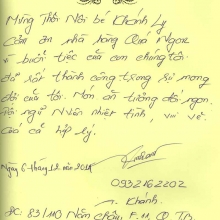 Mừng Thôi Nôi bé Khánh Ly
Cảm ơn nhà hàng Quá Ngon
vì buổi tiệc của con chúng tôi
đã rất thành công trong sự mong
đợi của tôi. Món ăn tương đối ngon.
Đội ngũ N.Viên nhiệt tình, vui vẻ.
Giá cả hợp lý.
Ngày 6 tháng 12 năm 2014
0932162202
Khánh.
ĐC: 83/110 Văn Chấn F.11 Q.TB